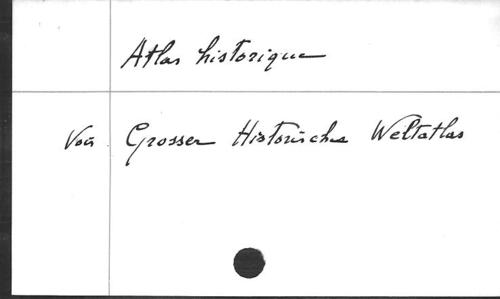 Atlas historique
Voir Grosser Historisches Weltatlas